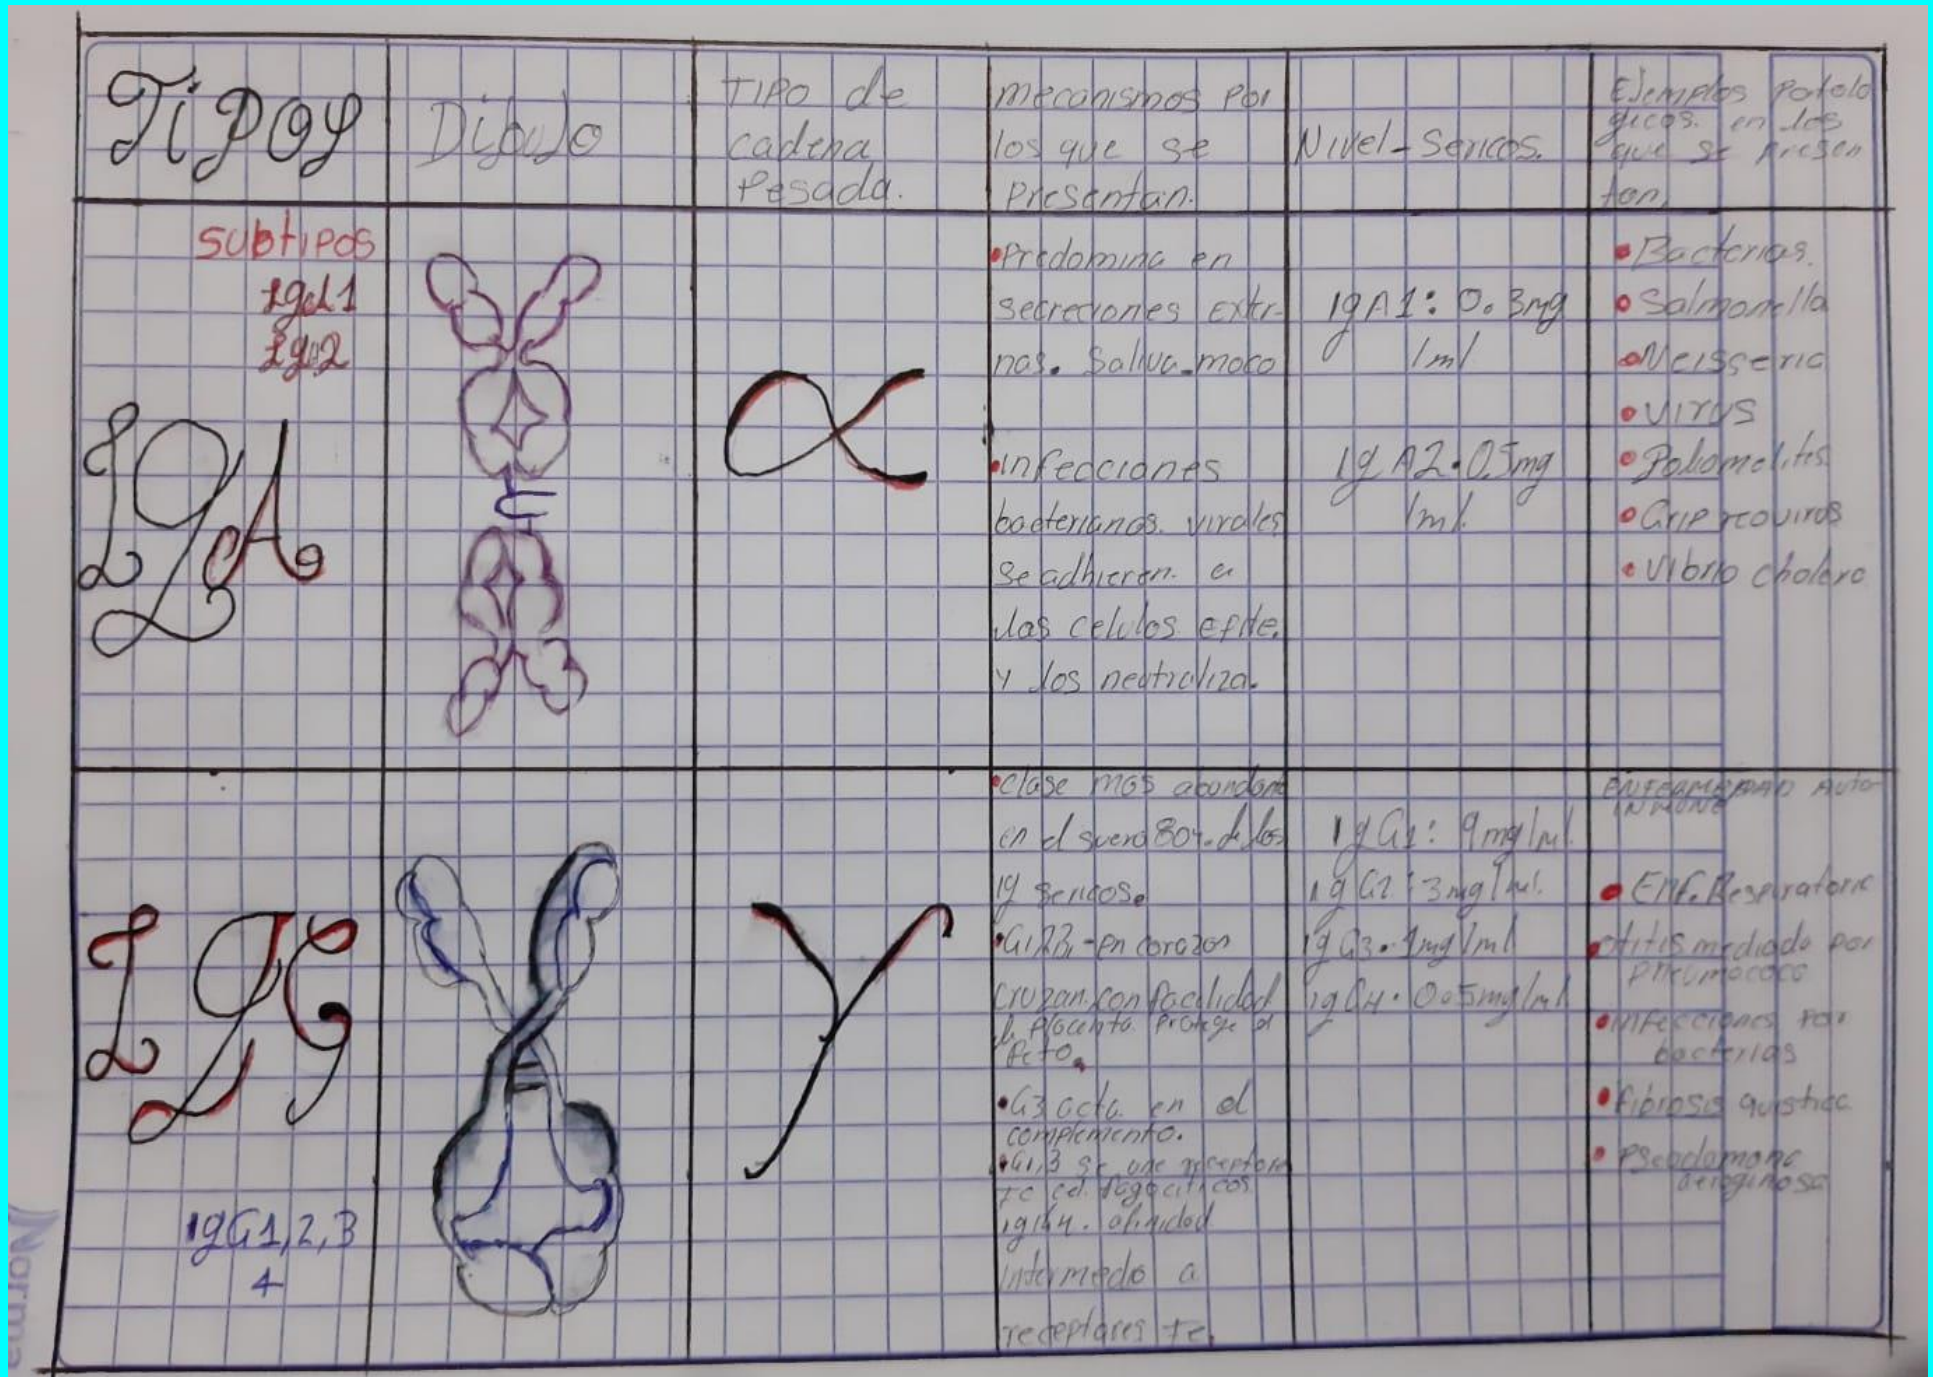 Tipos
Dibujo
TIPO de
cadena
Pesada.
mecanismos por
los que se
presentan.
Nivel-Sericos.
Ejemplos Patolo
gicos. en los
que se presen
tan.
Subtipos
IgA1
IgA2
IgA
α
•Predomina en
secreciones exter-
nas. Saliva-moco
•infecciones
bacterianas. virales
se adhieren. a
las celulas epite.
y los neutraliza.
IgA1: 0.3mg
/ml
IgA2•0.5mg
/ml.
•Bacterias.
•Salmonella
•Neisseria
•virus
•Poliomelitis
•Grip reovirus
•Vibrio cholera
IgG
IgG1,2,3
4
γ
•clase mas abundant
en el suero 80%. de las
ig sericos.
•G1,23,-en corazon
cruzan. con facilidad
la placenta. protege al
feto.
•G3 acta. en el
complemento.
•G1,3 se une receptore
Fc cel. fagociticos
igG4. afinidad
intermedo a
receptores Fc.
IgG1: 9mg/ml.
IgG2: 3mg/ml.
IgG3•1mg/ml
IgG4•0.5mg/ml
ENFERMEDAD Auto
INMUNE
•Enf. Respiratoria
•otitis mediada por
pneumococo
•infecciones por
bacterias
•fibrosis quistica.
•Pseudomona
aeroginosa
Norma